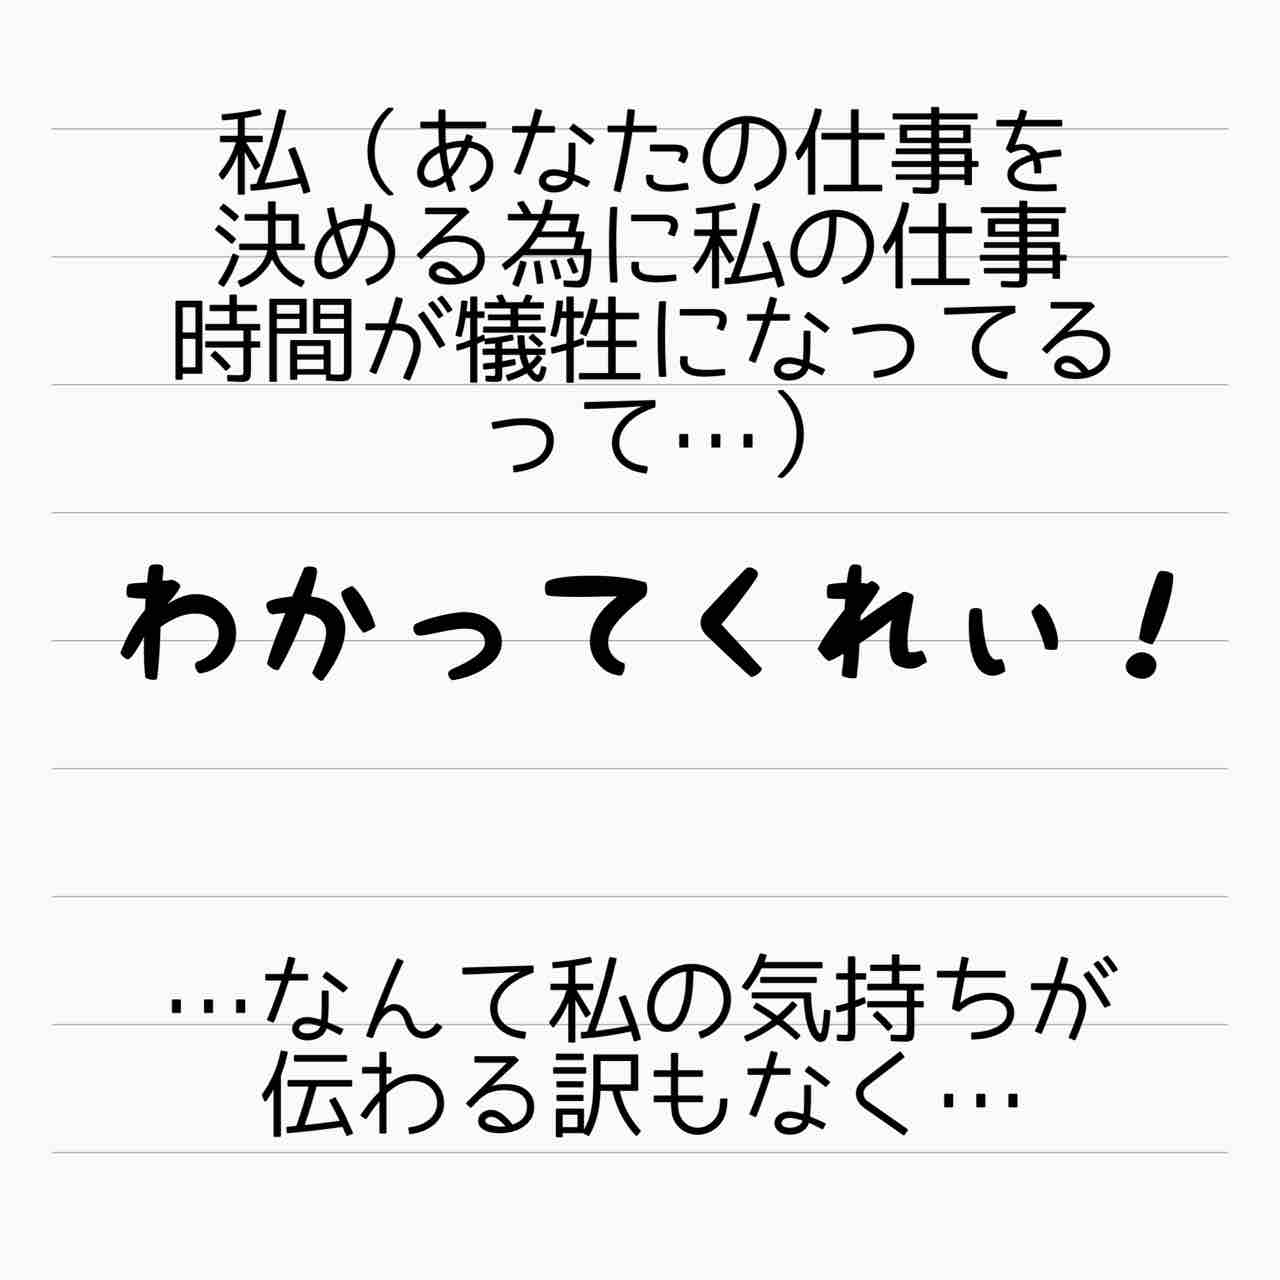 私（あなたの仕事を
決める為に私の仕事
時間が犠牲になってる
って…）
わかってくれぃ！
…なんて私の気持ちが
伝わる訳もなく…